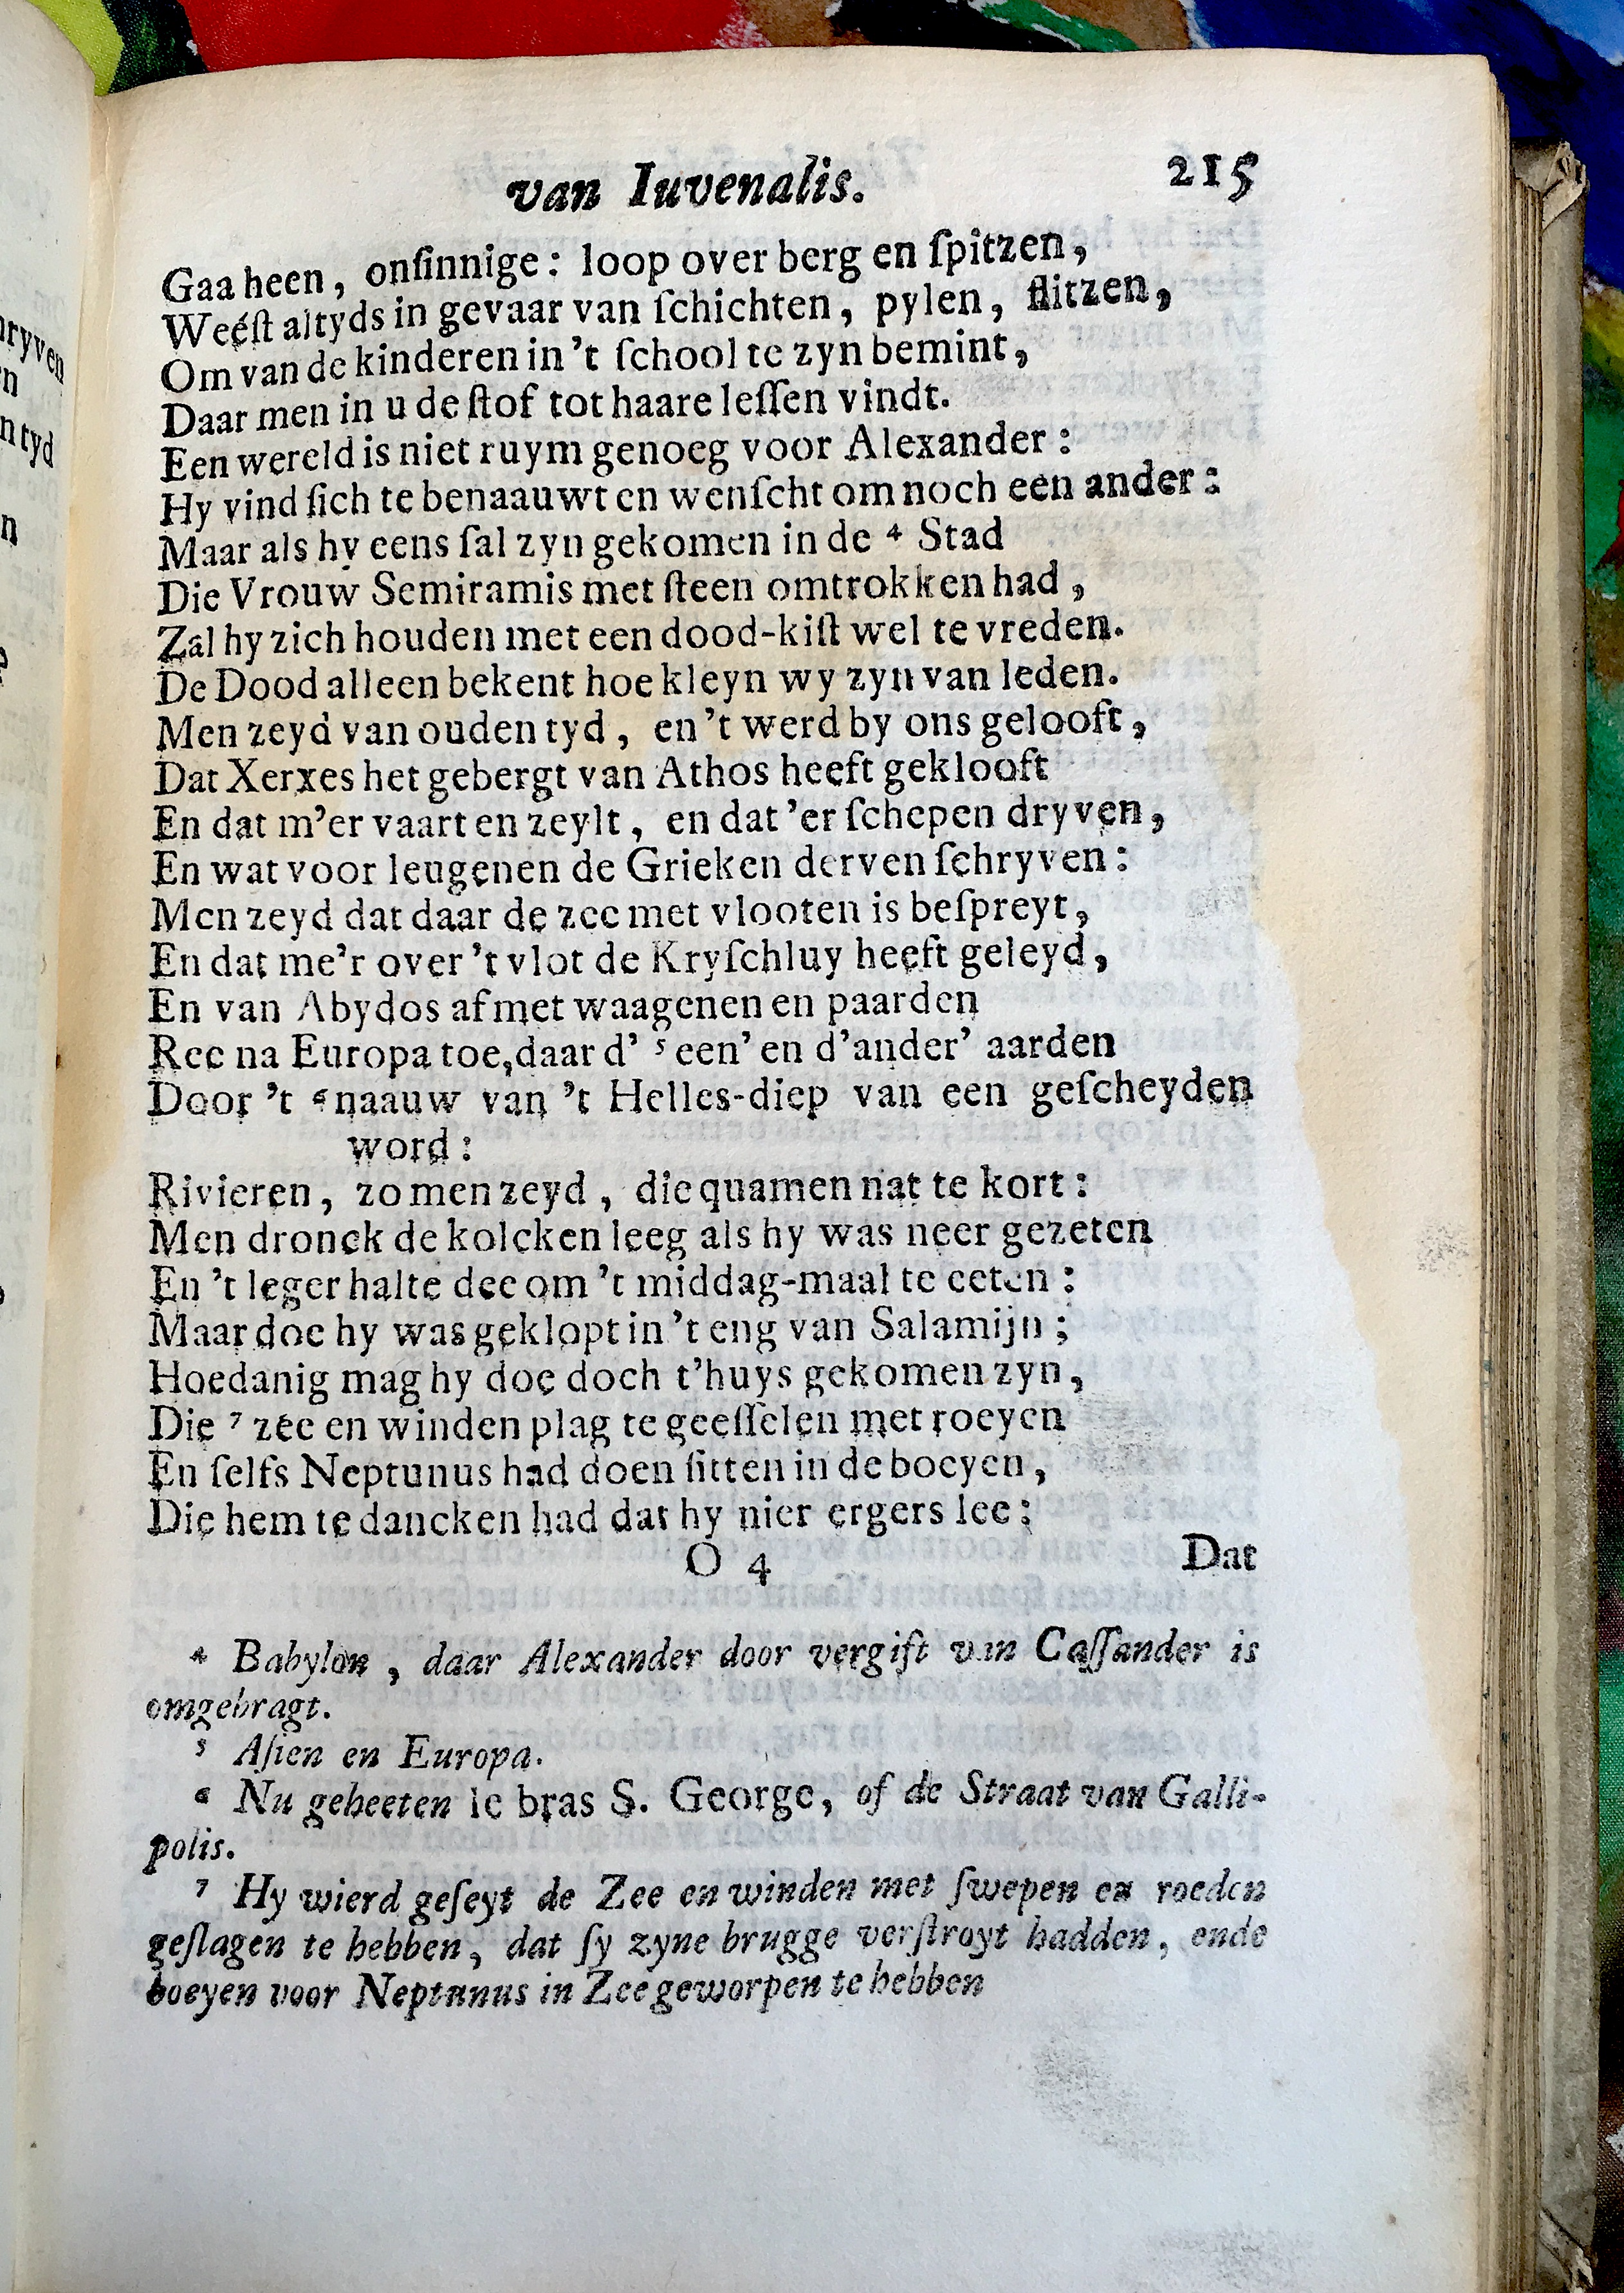 van Iuvenalis. 215
Gaa heen, onſinnige: loop over berg en ſpitzen,
Weéſt altyds in gevaar van ſchichten, pylen, flitzen,
Om van de kinderen in 't ſchool te zyn bemint,
Daar men in u de ſtof tot haare leſſen vindt.
Een wereld is niet ruym genoeg voor Alexander:
Hy vind ſich te benaauwt en wenſcht om noch een ander:
Maar als hy eens ſal zyn gekomen in de ⁴ Stad
Die Vrouw Semiramis met ſteen omtrokken had,
Zal hy zich houden met een dood-kiſt wel te vreden.
De Dood alleen bekent hoe kleyn wy zyn van leden.
Men zeyd van ouden tyd, en 't werd by ons gelooft,
Dat Xerxes het gebergt van Athos heeft geklooft
En dat m'er vaart en zeylt, en dat 'er ſchepen dryven,
En wat voor leugenen de Grieken derven ſchryven:
Men zeyd dat daar de zee met vlooten is beſpreyt,
En dat me'r over 't vlot de Kryſchluy heeft geleyd,
En van Abydos af met waagenen en paarden
Ree na Europa toe, daar d' ⁵ een' en d'ander' aarden
Door 't ⁶ naauw van 't Helles-diep van een geſcheyden
word:
Rivieren, zo men zeyd, die quamen nat te kort:
Men dronck de kolcken leeg als hy was neer gezeten
En 't leger halte dee om 't middag-maal te eeten:
Maar doe hy was geklopt in 't eng van Salamijn;
Hoedanig mag hy doe doch t'huys gekomen zyn,
Die ⁷ zee en winden plag te geeſſelen met roeyen
En ſelfs Neptunus had doen ſitten in de boeyen,
Die hem te dancken had dat hy niet ergers lee:
O 4 Dat
⁴ Babylon, daar Alexander door vergift van Caſſander is
omgebragt.
⁵ Aſien en Europa.
⁶ Nu geheeten le bras S. George, of de Straat van Galli-
polis.
⁷ Hy wierd geſeyt de Zee en winden met ſwepen en roeden
geſlagen te hebben, dat ſy zyne brugge verſtroyt hadden, ende
boeyen voor Neptunus in Zee geworpen te hebben